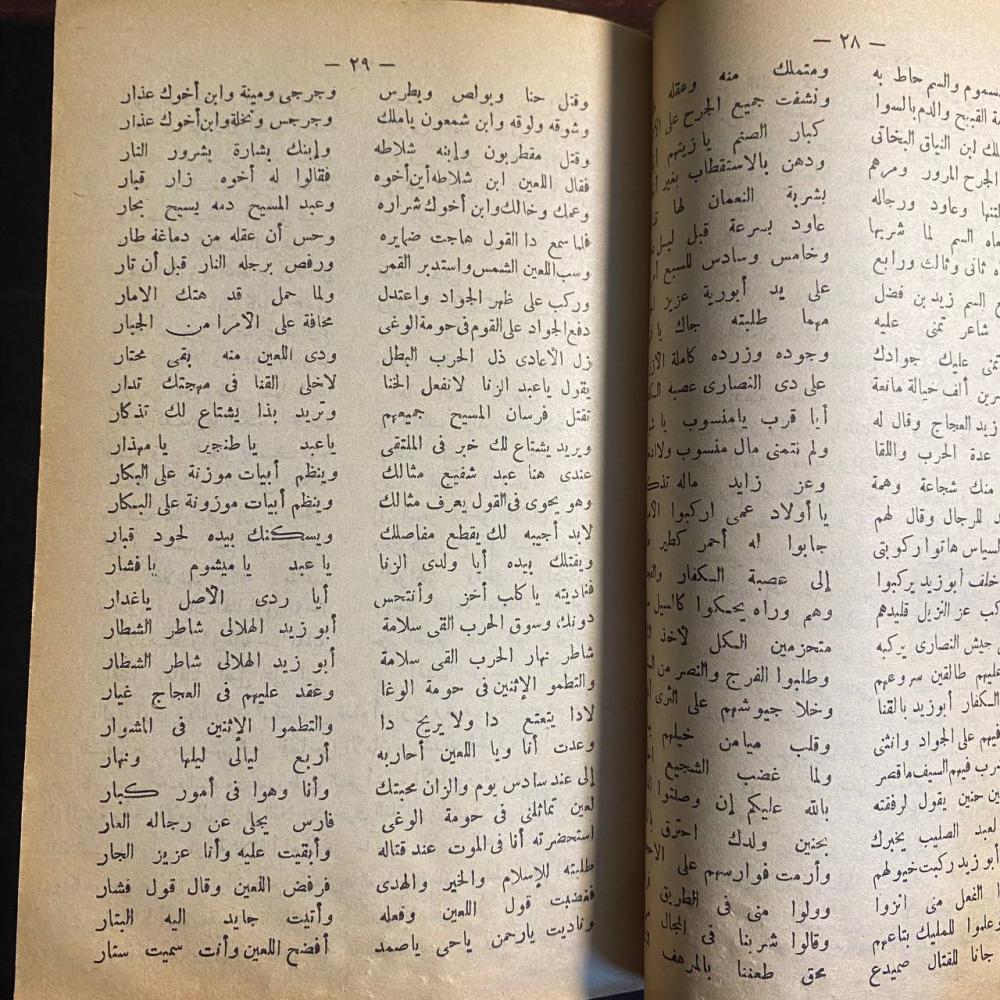 — ٢٨ —
والسم حاط به ومتملك منه وعقله
القيح والدم بالسوا ونشفت جميع الجرح على
ابن النياق البخاتى كبار الصنم يا زينهم
الجرح المرور ومرهم ودهن بالاستقطاب بغير
وعاود ورجاله بشربة النعمان لها
السم لما شربها عاود بسرعة قبل
ثانى وثالث ورابع وخامس وسادس للسبع
السم زيد بن فضل على يد أبورية عزيز
شاعر تمنى عليه مهما طلبته جاك
تمنى عليك جوادك وجوده وزرده كاملة
ألف خيالة مانعة على دى النصارى عصبة
زيد العجاج وقال له أبا قرب يامنسوب
عدة الحرب واللقا ولم نتمنى مال منسوب
منك شجاعة وهمة وعز زايد ماله
للرجال وقال لهم يا أولاد عمى اركبوا
السياس هاتوا ركوبتى جابوا له أحمر
خلف أبو زيد يركبوا إلى عصبة الكفار
عز النزيل قليدهم وهم وراه يحكوا
جيش النصارى يركبه متحزمين الكل لاخذ
عليهم طالقين سروعهم وطلبوا الفرج والنصر من
الكفار أبوزيد بالقنا وخلا جيوشهم على الثرى
فيهم على الجواد وانثى وقلب ميامن خيلهم
فيهم السيف ماقصر ولما غضب الشجيع
حنين يقول لرفقته بالله عليكم إن وصلتوا
لعبد الصليب يخبرك بحنين ولدك احترق
أبو زيد ركبت خيولهم وأرمت فوارسهم على
الفعل منى انزوا وولوا منى فى الطريق
وعلموا للمليك بتاعهم وقالوا شربنا فى المجال
جانا للقتال صميدع بحق طعننا بالمرهف
— ٢٩ —
وقتل حنا وبولص وبطرس وجرجى ومينة وابن أخوك عذار
وشوقه ولوقه وابن شمعون ياملك وجرجس ونخلة وابن أخوك عذار
وقتل مقطربون وإبنه شلاطه وإبنك بشارة بشرور النار
فقال اللعين ابن شلاطه أين أخوه فقالوا له أخوه زار قبار
وعمك وخالك وابن أخوك شراره وعبد المسيح دمه يسيح بحار
فلما سمع دا القول هاجت ضمايره وحس أن عقله من دماغة طار
وسب اللعين الشمس واستدبر القمر ورفص برجله النار قبل أن تار
وركب على ظهر الجواد واعتدل ولما حمل قد هتك الامار
دفع الجواد على القوم فى حومة الوغى مخافة على الامرا من الجبار
زل الأعادى ذل الحرب البطل ودى اللعين منه بقى محتار
يقول ياعبد الزنا لانفعل الخنا لاخلى القنا فى مهجتك تدار
تقتل فرسان المسيح جميعهم وتريد بذا يشتاع لك تذكار
ويريد يشتاع لك خبر فى الملتقى ياعبد يا طنجير يا مهذار
عندى هنا عبد شفيع مثالك وينظم أبيات موزنة على البكار
وهو يحوى فى القول يعرف مثالك وينظم أبيات موزونة على البكار
لابد أجيبه لك يقطع مفاصلك ويسكنك بيده لحود قبار
ويقتلك بيده أيا ولدى الزنا يا عبد يا ميشوم يا فشار
فناديته يا كلب أخز وأنتحس أيا ردى الأصل ياغدار
دونك وسوق الحرب القى سلامة أبو زيد الهلالى شاطر الشطار
شاطر نهار الحرب القى سلامة أبو زيد الهلالى شاطر الشطار
والتطمو الإثنين فى حومة الوغا وعقد عليهم فى العجاج غيار
لادا يتعتع دا ولا يريح دا والتطموا الإثنين فى المشوار
وعدت أنا ويا اللعين أحاربه أربع ليالى ليلها ونهار
إلى عند سادس يوم والزان محبتك وأنا وهوا فى أمور كبار
لعين تماثلنى فى حومة الوغى فارس يجلى عن رجاله العار
استحضرته أنا فى الموت عند قتاله وأبقيت عليه وأنا عزيز الجار
طلبته للإسلام والخير والهدى فرفض اللعين وقال قول فشار
فغضبت قول اللعين وفعله وأتيت جايد اليه البتار
وناديت يارحمن ياحى ياصمد أفضح اللعين وأنت سميت ستار